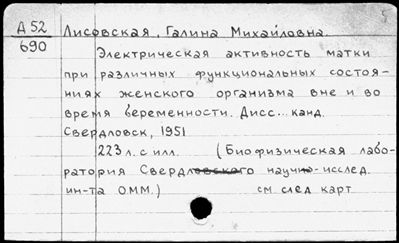 5
А 52
690
Лисовская, Галина Михайловна.
Электрическая активность матки
при различных функциональных состоя-
ниях женского организма вне и во
время беременности. Дисс... канд.
Свердловск, 1951
223 л. с илл. (Биофизическая лабо-
ратория Свердловского научно-исслед.
ин-та ОММ.) см. след карт